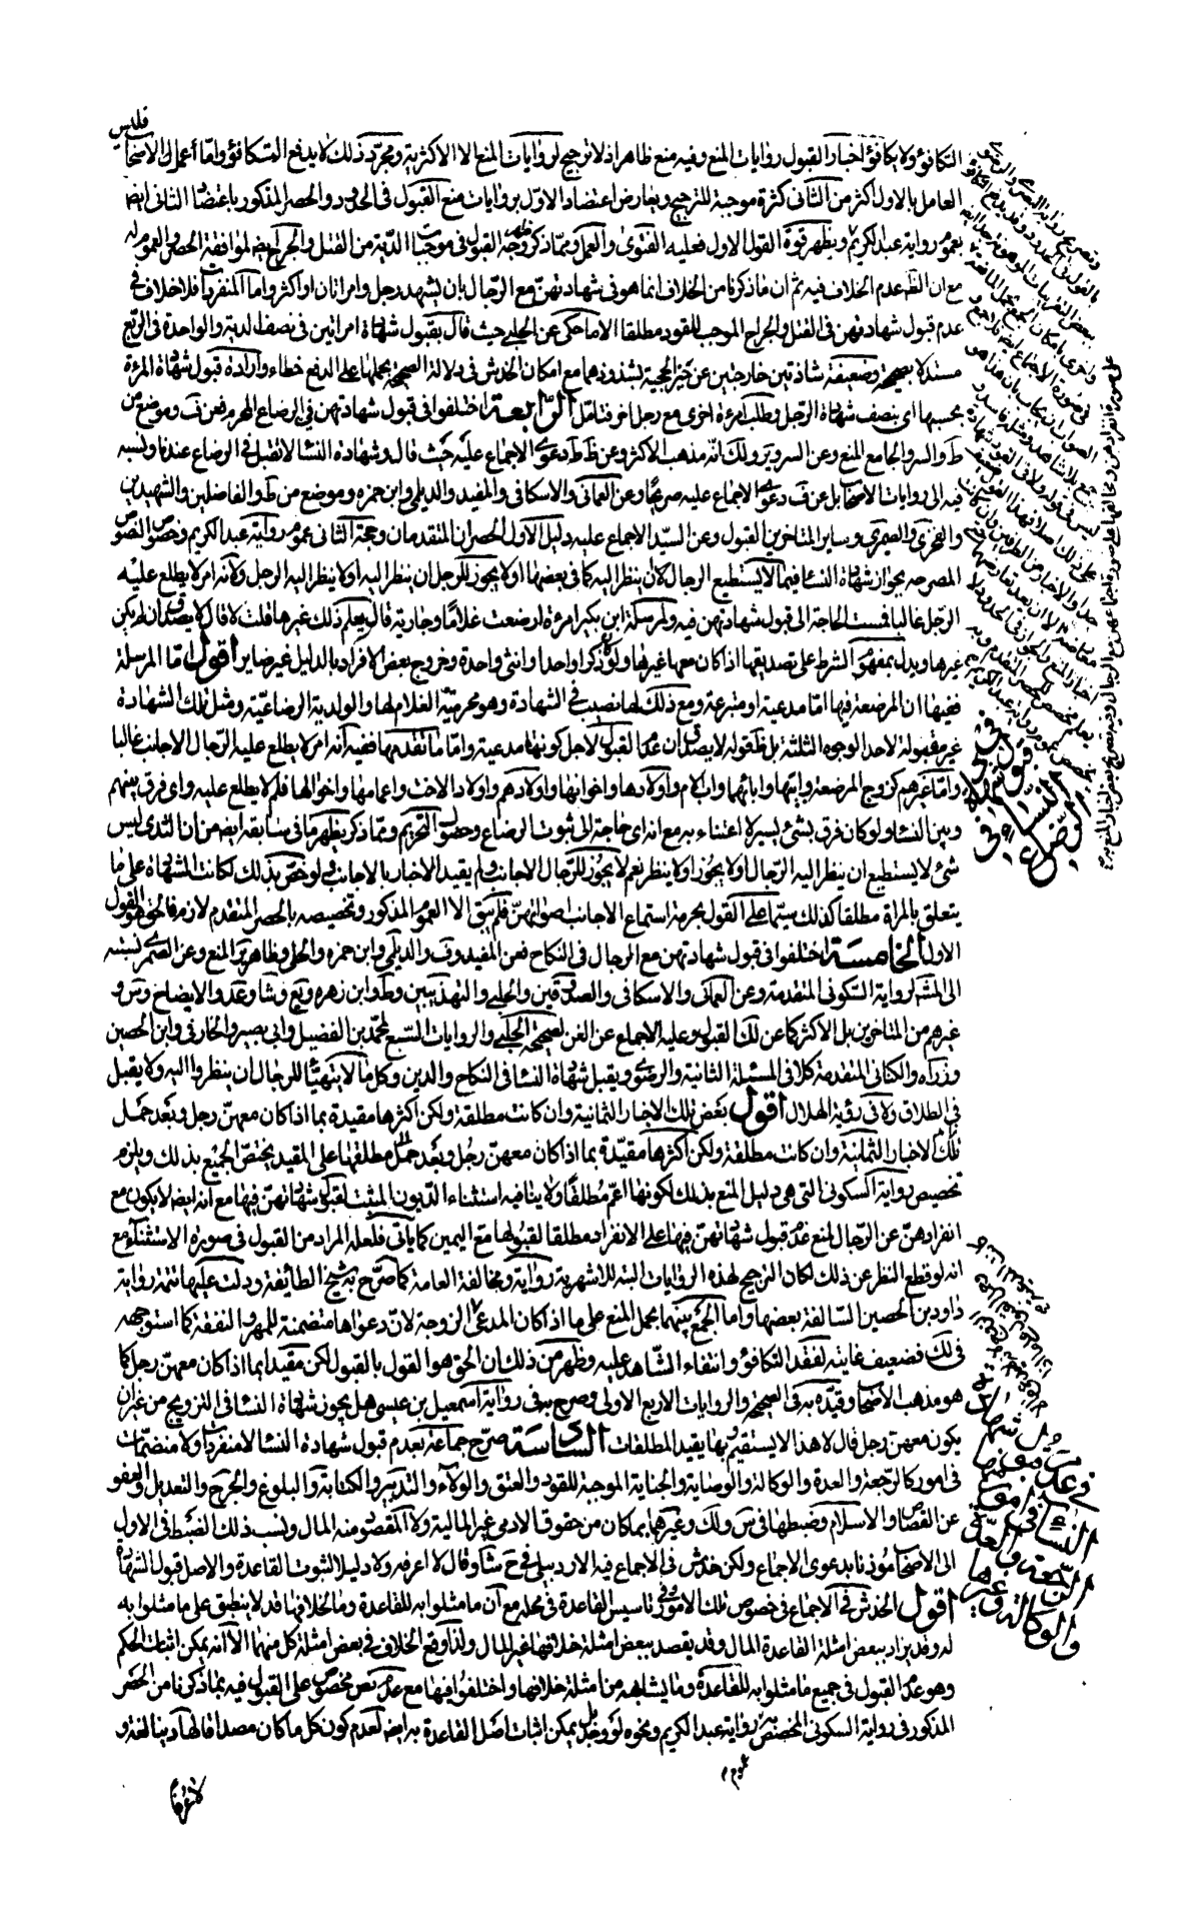 فليس
التكافؤ ولا يكافؤ اخبار القبول روايات المنع وفيه منع ظاهر اذ لا ترجيح لروايات المنع الا الاكثرية ومجرّد ذلك لا يدفع التكافؤ واما أعمل الاصحاب
العامل بالاول اكثر من الثانى كثرة موجبة للترجيح ويعارض اعتضاد الاول بروايات منع القبول فى الحدود والحصر المذكور باعتضاد الثانى ايضا
بعموم رواية عبد الكريم ويظهر قوة القول الاول فعليه الفتوى والعمل وممّا ذكر وجه القبول فى موجبات الدّية من القتل والجرح ايضا لموافقة الحصر والعموم له
مع ان الظ عدم الخلاف فيه ثم ان ما ذكرنا من الخلاف انما هو فى شهادتهنّ مع الرّجال بان يشهد رجل وامراتان او اكثر واما المنفردات فلا خلاف فى
عدم قبول شهادتهن فى القتل والجراح الموجب للقود مطلقا الا ما حكى عن الحلبى حيث قال بقبول شهادة امراتين فى نصف الدية والواحدة فى الربع
مستدلا بصحيحة وضعيفة شاذتين خارجتين عن حيز الحجية لشذوذهما مع امكان الخدش فى دلالة الصحيحة بحملها على الدفع خطاء وارادة قبول شهادة المرءة
بحسبها اى بنصف شهادة الرّجل وطلب امرءة اخرى مع رجل اخر فتامّل الرّابعة اختلفوا فى قبول شهادتهن فى الرضاع المحرم فعن ف وموضع من
ط والسر والجامع المنع وعن السر وير ولك انه مذهب الاكثر وعن ظ ط دعوى الاجماع عليه حيث قال وشهادة النساء لا تقبل فى الرضاع عندنا ونسبه
فيه الى روايات الاصحاب بل عن ف دعوى الاجماع عليه صريحا وعن العمانى والاسكافى والمفيد والديلمى وابن حمزه وموضع من ط والفاضلين والشهيدين
والفخرى والصيمرى وساير المتاخرين القبول وعن السيّد الاجماع عليه دليل الاول الحصران المتقدمان وحجة الثانى عموم رواية عبد الكريم وخصوص النصوص
المصرحه بجواز شهادة النساء فيما لا يستطيع الرجال ان ينظر اليه كما فى بعضها او لا يجوز للرجل ان ينظر اليه او لا ينظر اليه الرجل ولانه امر لا يطلع عليه
الرّجل غالبا فمست الحاجة الى قبول شهادتهن فيه ولمرسلة ابن بكير امرءة ارضعت غلامًا وجارية قال يعلم ذلك غيرها قلت لا قال لا يصدق ان لم يكن
غيرها ويدل بمفهوم الشرط على تصديقها اذا كان معها غيرها ولو ذكرا واحدا وانثى واحدة وخروج بعض الافراد بالدليل غير ضاير اقول امّا المرسلة
ففيها ان المرضعة فيها امّا مدعية او متبرعة ومع ذلك لها نصيب فى الشهادة وهو محرمية الغلام لها والولدية الرضاعيّة ومثل تلك الشهادة
غير مقبولة لاحد الوجوه الثلثة بل ظ قوله لا يصدق ان عدم القبول لاجل كونها مدعية واما ما تقدمها ففيه انه امر لا يطلع عليه الرّجال الاجانب غالبا
وامّا غيرهم كزوج المرضعة وابنها وابائهما واب الام واولادها واخوانها واولادهم واولاد الاخت واعمامها واخوالها فلم لا يطلع عليه واى فرق بينهم
وبين النساء ولو كان فرق بشئ يسير لا اعتناء به مع انه اى حاجة الى ثبوت الرضاع وحصول التحريم وممّا ذكر يظهر ما فى سابقه ايضا من ان الثدى ليس
شئ لا يستطيع ان ينظر اليه الرّجال او لا يجوز او لا ينظر نعم لا يجوز للرّجال الاجانب ولم يقيد الاخبار بالاجانب ولو خصّ بذلك لكانت الشهادة على ما
يتعلق بالمراة مطلقا كذلك سيّما على القول بحرمة استماع الاجانب اصواتهنّ فلم يبق الا العموم المذكور وتخصيصه بالحصر المتقدم لازم فالحق هو القول
الاول الخامسة اختلفوا فى قبول شهادتهن مع الرجال فى النكاح فعن المفيد وف والديلمى وابن حمزه والحلى وظاهر ير المنع وعن الصيمرى نسبته
الى المش لرواية السكونى المتقدمة وعن العمانى والاسكافى والصدوقين والحلبى والتهذيبين وط وابن زهره ويع وشا وعد والايضاح وس و
غيرهم من المتاخرين بل الاكثر كما عن لك القبول وعليه الاجماع عن الغن لصحيحة الحلبى والروايات السّبع لمحمّد بن الفضيل وابى بصير والحارثى وابن الحصين
وزراره والكنانى المتقدمة كلا فى المسئلة الثانية والرضوى ويقبل شهادة النساء فى النكاح والدين وكل ما لا يتهيّأ للرجال ان ينظروا اليه ولا يقبل
فى الطلاق ولا فى رؤية الهلال اقول بعض تلك الاخبار الثمانية وان كانت مطلقة ولكن اكثرها مقيدة بما اذا كان معهنّ رجل وبعد حمل
تلك الاخبار الثمانية وان كانت مطلقة ولكن اكثرها مقيّدة بما اذا كان معهنّ رجل وبعد حمل مطلقها على المقيد يختصّ الجميع بذلك ويلزم
تخصيص رواية السكونى التى هى دليل المنع بذلك لكونها اعم مطلقًا ولا ينافيه استثناء الدّيون المثبت لقبول شهاتهنّ فيها مع انه ايضا لا يكون مع
انفرادهنّ عن الرّجال لمنع عدم قبول شهادتهنّ فيها على الانفراد مطلقا لقبولها مع اليمين كما ياتى فلعله المراد من القبول فى صورة الاستثناء مع
انه لو قطع النظر عن ذلك لكان الترجيح لهذه الروايات البته للاشهرية رواية ومخالفة العامة كما صرّح به شيخ الطائفة ودلت عليها تتمة رواية
داود بن الحصين السّالفة بعضها واما الجمع بينهما بحمل المنع على ما اذا كان المدعى الزوجة لانّ دعواها متضمنة للمهر والنفقة كما استوجهه
فى لك فضعيف غايته لفقد التكافؤ وانتفاء الشّاهد عليه وظهر من ذلك ان الحق هو القول بالقبول لكن مقيّدا بما اذا كان معهنّ رجل كما
هو مذهب الاصحاب وقيّده به فى الصحيحة والروايات الاربع الاولى وصرح به فى رواية اسمعيل بن عيسى هل يجوز شهادة النساء فى التزويج من غير ان
يكون معهن رجل قال لا هذا لا يستقيم وبها يقيد المطلقات السّادسة صرّح جماعة بعدم قبول شهادة النساء لا منفردات ولا منضمات
فى امور كالرّجعة والعدة والوكالة والوصاية والجناية الموجبة للقود والعتق والولاء والتدبير والكتابة والبلوغ والجرح والتعديل والعفو
عن القصاص والاسلام وضبطها فى س ولك وغيرهما بما كان من حقوق الادمى غير المالية ولا المقصود منه المال ونسب ذلك الضبط فى الاول
الى الاصحاب مؤذنا بدعوى الاجماع ولكن خدش فى الاجماع فيه الاردبيلى فى ح شا وقال لا اعرفه ولا دليل لثبوت القاعدة والاصل قبول الشهادة
اقول الخدش فى الاجماع فى خصوص تلك الامور وفى تاسيس القاعدة فى محله مع ان ما مثلوا به للقاعدة وما لخلافها قد لا ينطبق على ما مثلوا به
له وقد يراد ببعض امثلة القاعدة المال وقد يقصد ببعض امثلة خلافها غير المال ولذا وقع الخلاف فى بعض امثلة كل منهما الا انه يمكن اثبات الحكم
وهو عدم القبول فى جميع ما مثلوا به للقاعدة وما يشابهه من امثلة خلافها واختلفوا فيها مع عدم نص مخصوص على القبول فيه بما ذكرنا من الحصر
المذكور فى رواية السكونى المخصص به رواية عبد الكريم ونحوه لو وجد بل يمكن اثبات اصل القاعدة به ايضا لعدم كون كل ما كان مصداقا لها دينا لغة و
لا عرفا
فى قبول شهادة النساء فى الرضاع
فى عدم قبول شهادة النساء فى امور الرجعة والعدة والوكالة وغيرها